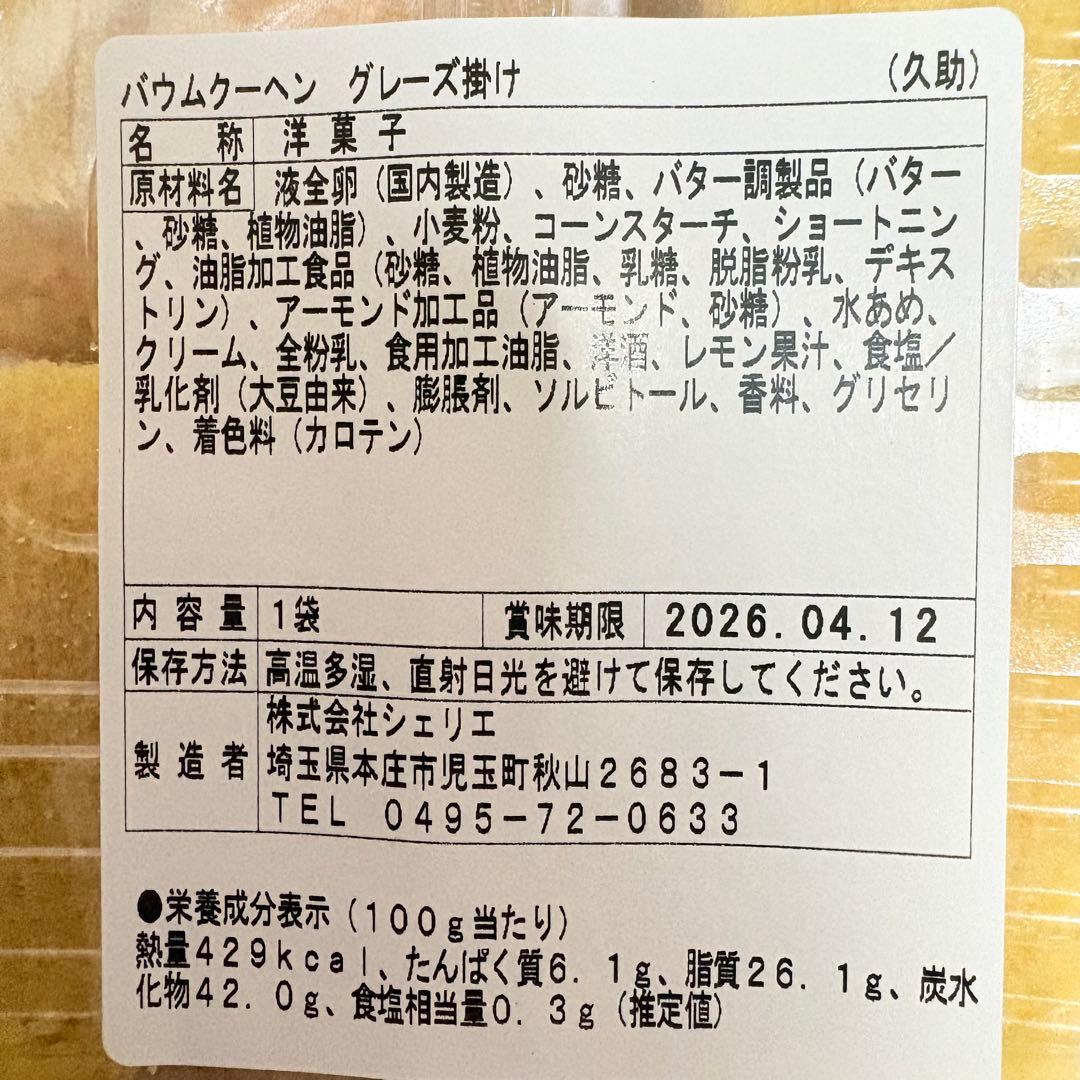 バウムクーヘン　グレーズ掛け　（久助）
名　称　洋菓子
原材料名　液全卵（国内製造）、砂糖、バター調製品（バター
、砂糖、植物油脂）、小麦粉、コーンスターチ、ショートニン
グ、油脂加工食品（砂糖、植物油脂、乳糖、脱脂粉乳、デキス
トリン）、アーモンド加工品（アーモンド、砂糖）、水あめ、
クリーム、全粉乳、食用加工油脂、洋酒、レモン果汁、食塩／
乳化剤（大豆由来）、膨脹剤、ソルビトール、香料、グリセリ
ン、着色料（カロテン）
内容量　1袋　賞味期限　2026.04.12
保存方法　高温多湿、直射日光を避けて保存してください。
製造者　株式会社シェリエ
埼玉県本庄市児玉町秋山２６８３－１
ＴＥＬ　０４９５－７２－０６３３
●栄養成分表示（１００ｇ当たり）
熱量４２９ｋｃａｌ、たんぱく質６．１ｇ、脂質２６．１ｇ、炭水
化物４２．０ｇ、食塩相当量０．３ｇ（推定値）